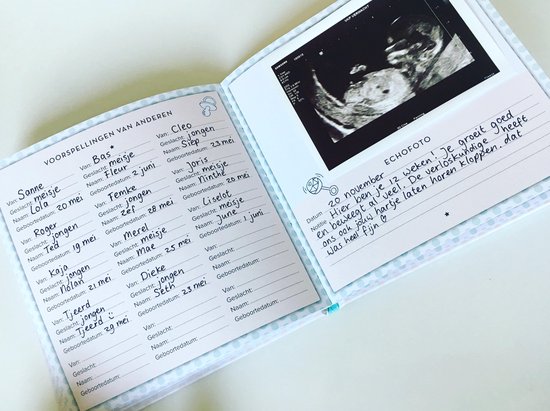 VOORSPELLINGEN VAN ANDEREN
Van: Sanne
Geslacht: meisje
Naam: Lola
Geboortedatum: 20 mei
Van: Roger
Geslacht: jongen
Naam: Ted
Geboortedatum: 19 mei
Van: Kaja
Geslacht: jongen
Naam: Nolan
Geboortedatum: 21 mei
Van: Tjeerd
Geslacht: jongen
Naam: Tjeerd
Geboortedatum: 29 mei
Van:
Geslacht:
Naam:
Geboortedatum:
Van: Bas
Geslacht: meisje
Naam: Fleur
Geboortedatum: 2 juni
Van: Femke
Geslacht: jongen
Naam: Zef
Geboortedatum: 28 mei
Van: Merel
Geslacht: meisje
Naam: Mae
Geboortedatum: 25 mei
Van: Dieke
Geslacht: jongen
Naam: Seth
Geboortedatum: 23 mei
Van:
Geslacht:
Naam:
Geboortedatum:
Van: Cleo
Geslacht: jongen
Naam: Siep
Geboortedatum: 23 mei
Van: Joris
Geslacht: meisje
Naam: Ninthe
Geboortedatum: 28 mei
Van: Liselot
Geslacht: meisje
Naam: June
Geboortedatum: 1 juni
Van:
Geslacht:
Naam:
Geboortedatum:
Van:
Geslacht:
Naam:
Geboortedatum:
ECHOFOTO
Datum 20 november
Notitie Hier ben je 12 weken! Je groeit goed
en beweegt al veel. De verloskundige heeft
ons ook jouw hartje laten horen kloppen, dat
was heel fijn